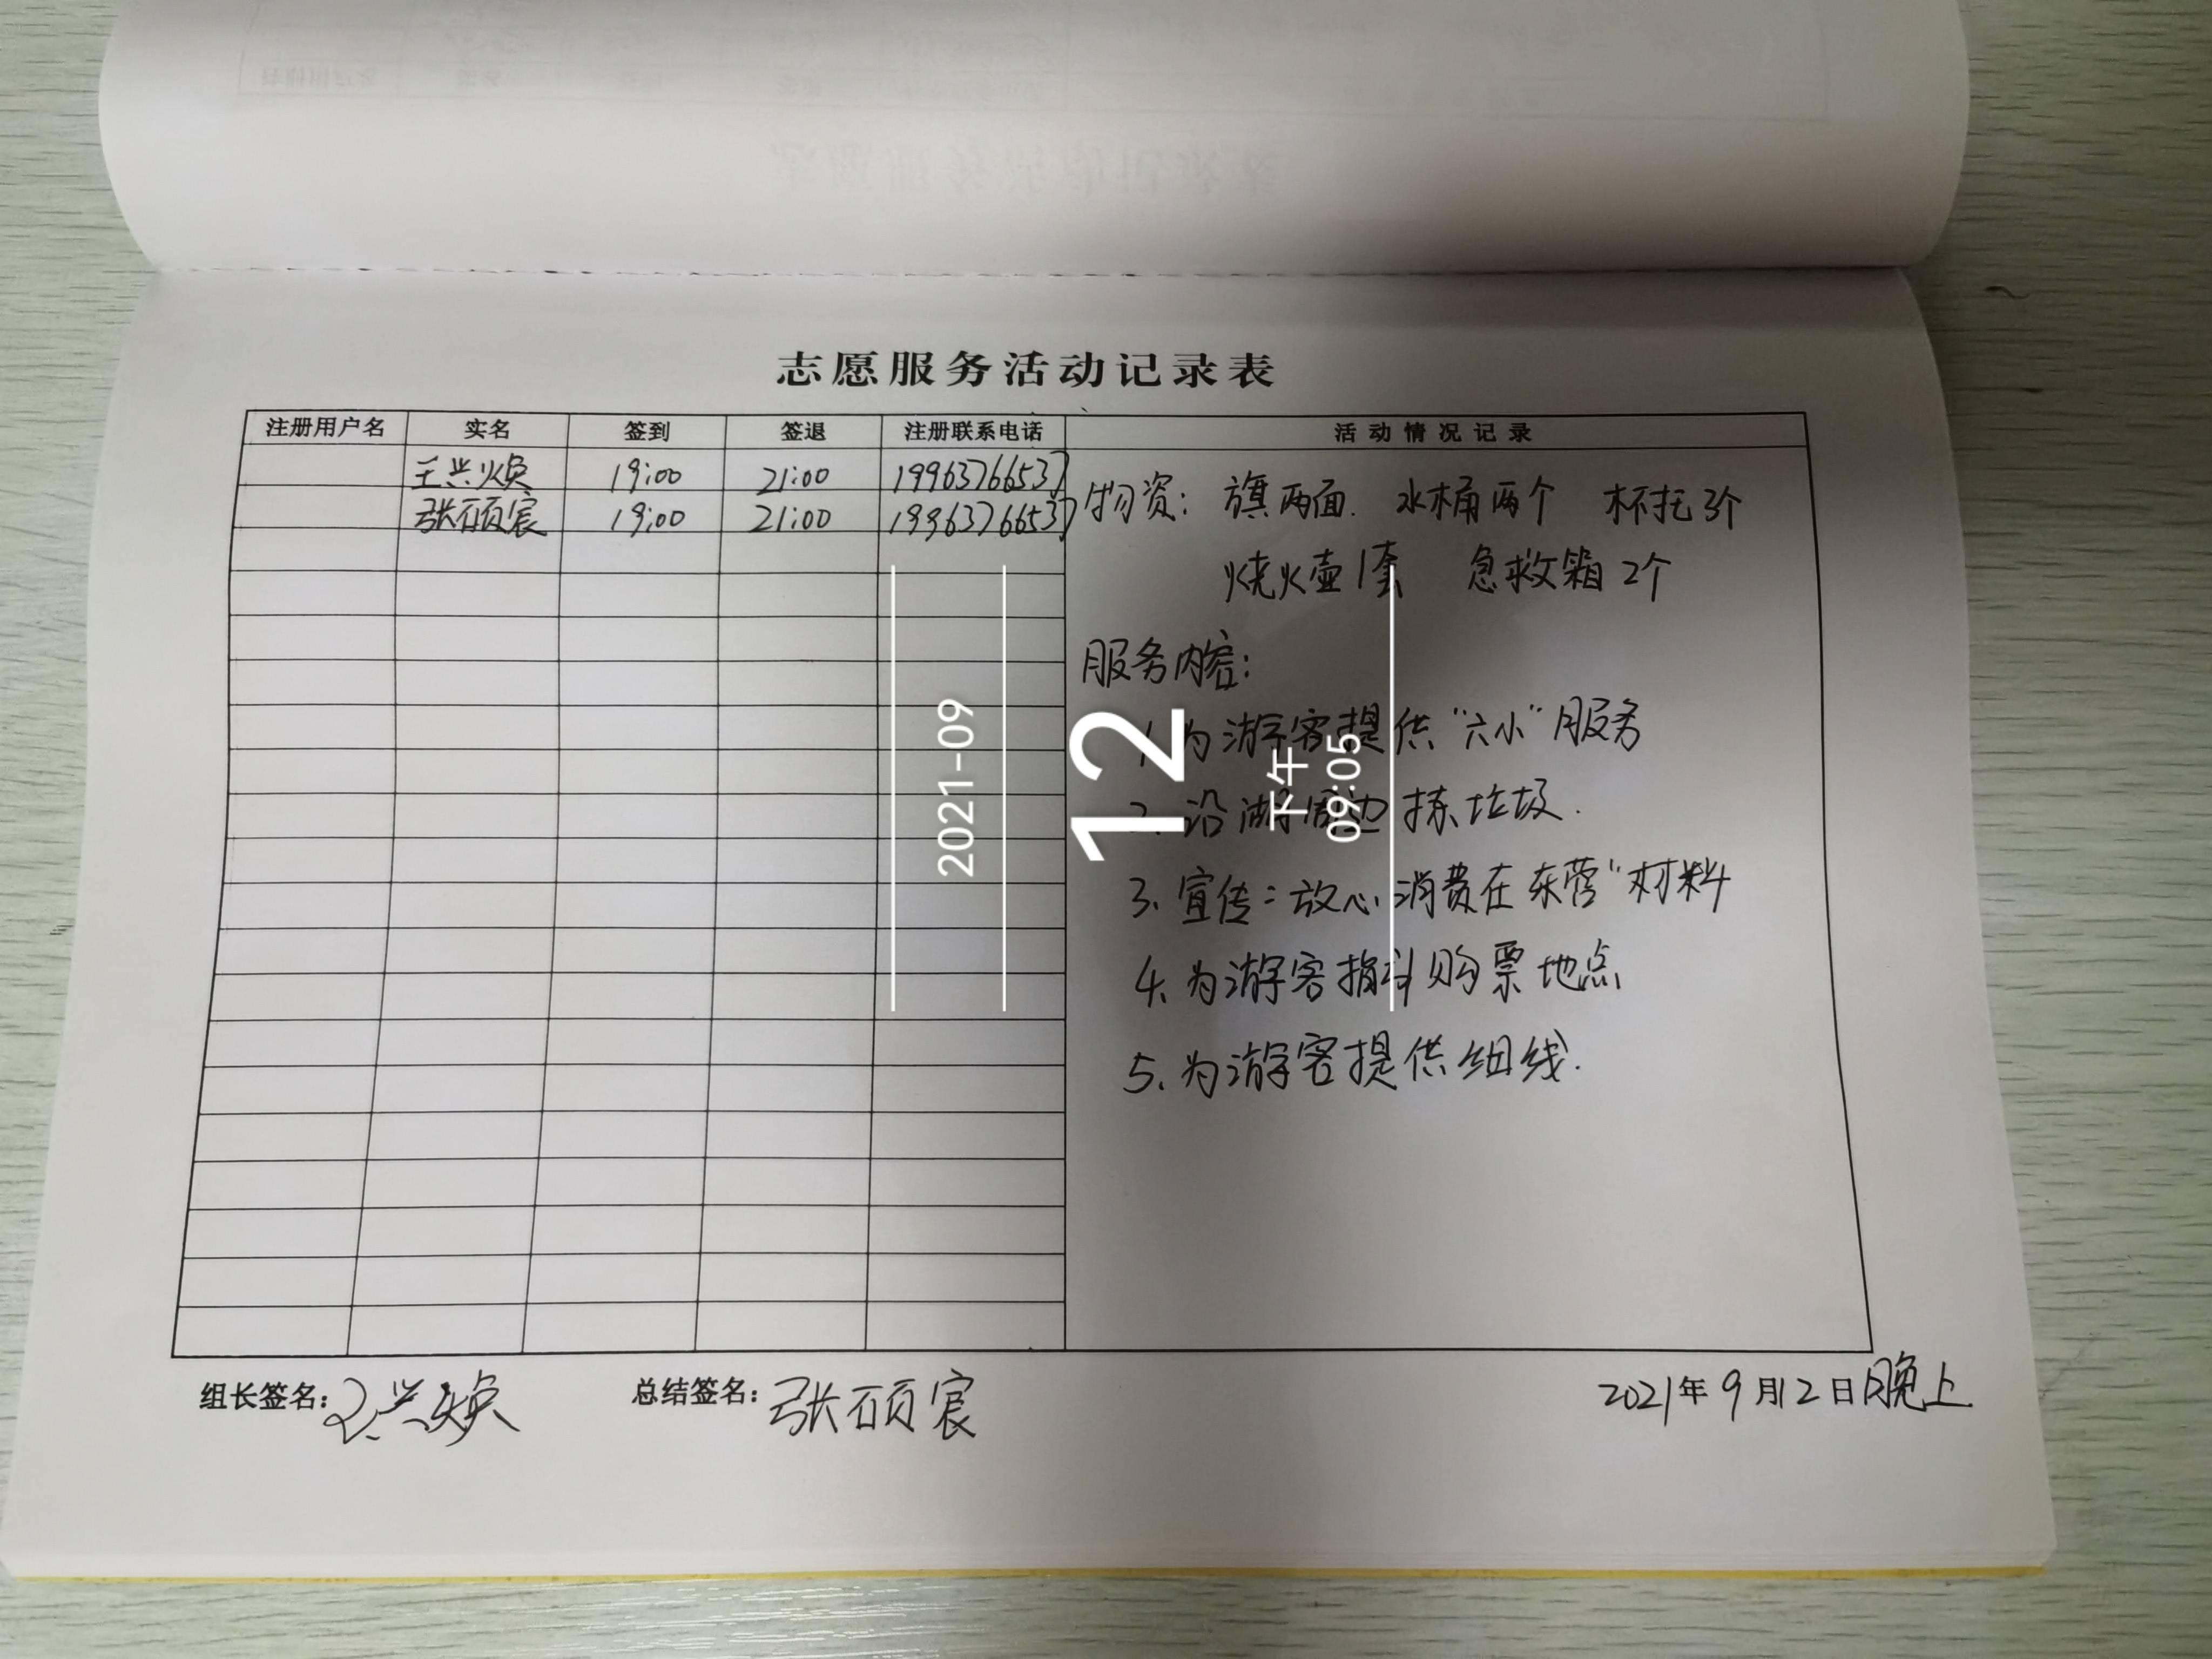 志愿服务活动记录表
注册用户名 实名 签到 签退 注册联系电话 活动情况记录
王兴焕 19:00 21:00 19963766537
张硕宸 19:00 21:00 19963766537
物资: 旗两面. 水桶两个 杯托3个
烧火壶1套 急救箱2个
服务内容:
1.为游客提供“六小”服务
2.沿湖周边拣垃圾.
3、宣传:放心消费在东营”材料
4、为游客指引购票地点
5、为游客提供细线.
组长签名: 王兴焕 总结签名: 张硕宸 2021年9月12日晚上
2021-09
12
下午
09:05